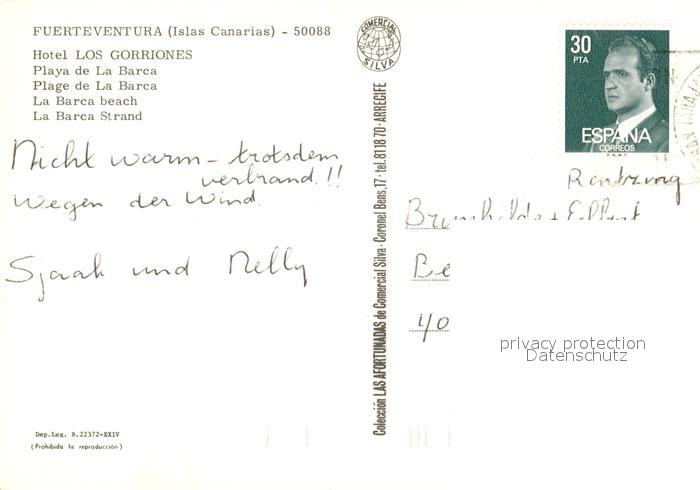 FUERTEVENTURA (Islas Canarias) - 50088
Hotel LOS GORRIONES
Playa de La Barca
Plage de La Barca
La Barca beach
La Barca Strand
Nicht warm - trotsdem
verbrand.!!
Wegen der Wind.
Sjaak und Nelly
Dep.Leg. B.22372-XXIV
(Prohibida la reproducción)
COMERCIAL
SILVA
Colección LAS AFORTUNADAS de Comercial Silva - Coronel Bens, 17 - tel. 81 18 70 - ARRECIFE
30
PTA
ESPAÑA
CORREOS
F.N.M.T.
Be
40
privacy protection
Datenschutz